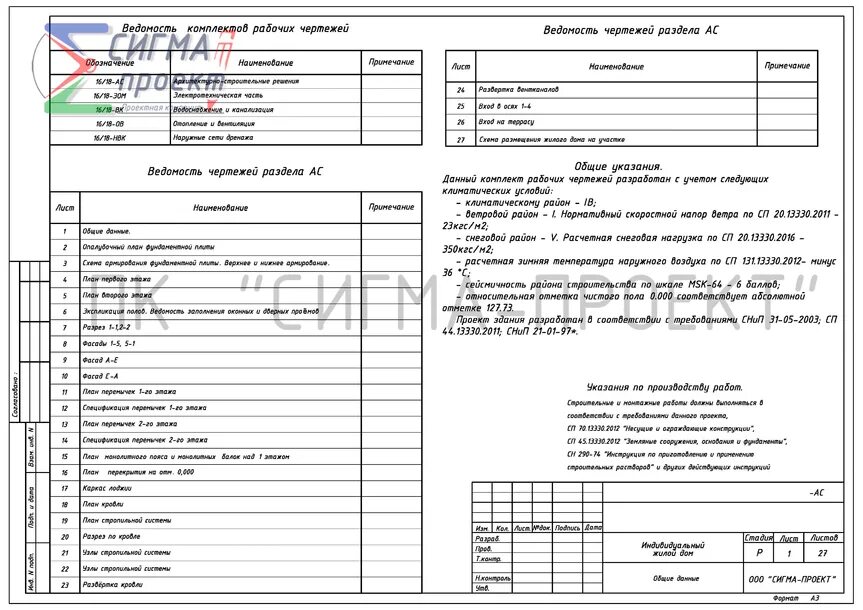 Ведомость комплектов рабочих чертежей
СИГМА
проект
Проектная
Обозначение Наименование Примечание
16/18-АС Архитектурно-строительные решения
16/18-ЭОМ Электротехническая часть
16/18-ВК Водоснабжение и канализация
16/18-ОВ Отопление и вентиляция
16/18-НВК Наружные сети дренажа
Ведомость чертежей раздела АС
Лист Наименование Примечание
1 Общие данные.
2 Опалубочный план фундаментной плиты
3 Схема армирования фундаментной плиты. Верхнее и нижнее армирование.
4 План первого этажа
5 План второго этажа
6 Экспликация полов. Ведомость заполнения оконных и дверных проёмов
7 Разрез 1-1,2-2
8 Фасады 1-5, 5-1
9 Фасад А-Е
10 Фасад Е-А
11 План перемычек 1-го этажа
12 Спецификация перемычек 1-го этажа
13 План перемычек 2-го этажа
14 Спецификация перемычек 2-го этажа
15 План монолитного пояса и монолитных балок над 1 этажом
16 План перекрытия на отм. 0,000
17 Каркас лоджии
18 План кровли
19 План стропильной системы
20 Разрез по кровле
21 Узлы стропильной системы
22 Узлы стропильной системы
23 Развёртка кровли
Ведомость чертежей раздела АС
Лист Наименование Примечание
24 Развертка вентканалов
25 Вход в осях 1-4
26 Вход на террасу
27 Схема размещения жилого дома на участке
Общие указания.
Данный комплект рабочих чертежей разработан с учетом следующих
климатических условий:
- климатическому район - IВ;
- ветровой район - I. Нормативный скоростной напор ветра по СП 20.13330.2011 -
23кгс/м2;
- снеговой район - V. Расчетная снеговая нагрузка по СП 20.13330.2016 -
350кгс/м2;
- расчетная зимняя температура наружного воздуха по СП 131.13330.2012- минус
36 °С;
- сейсмичность района строительства по шкале MSK-64 - 6 баллов;
- относительная отметка чистого пола 0.000 соответствует абсолютной
отметке 127.73.
Проект здания разработан в соответствии с требованиями СНиП 31-05-2003; СП
44.13330.2011; СНиП 21-01-97*.
ПК "СИГМА-ПРОЕКТ"
Указания по производству работ.
Строительные и монтажные работы должны выполняться в
соответствии с требованиями данного проекта,
СП 70.13330.2012 "Несущие и ограждающие конструкции",
СП 45.13330.2012 "Земляные сооружения, основания и фундаменты",
СН 290-74 "Инструкция по приготовлению и применению
строительных растворов" и других действующих инструкций
Согласовано :
Взам. инв. N
Подп. и дата
Инв. N подп.
-АС
Изм. Кол. Лист. №док. Подпись Дата
Разраб.
Пров.
Т.контр.
Н.контроль
Утв.
Индивидуальный
жилой дом
Стадия Лист Листов
Р 1 27
Общие данные
ООО "СИГМА-ПРОЕКТ"
Формат А3